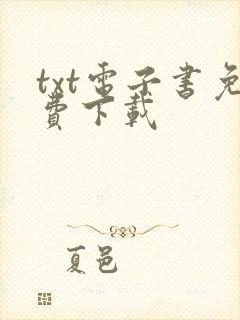 txt电子書免
費下載
夏邑